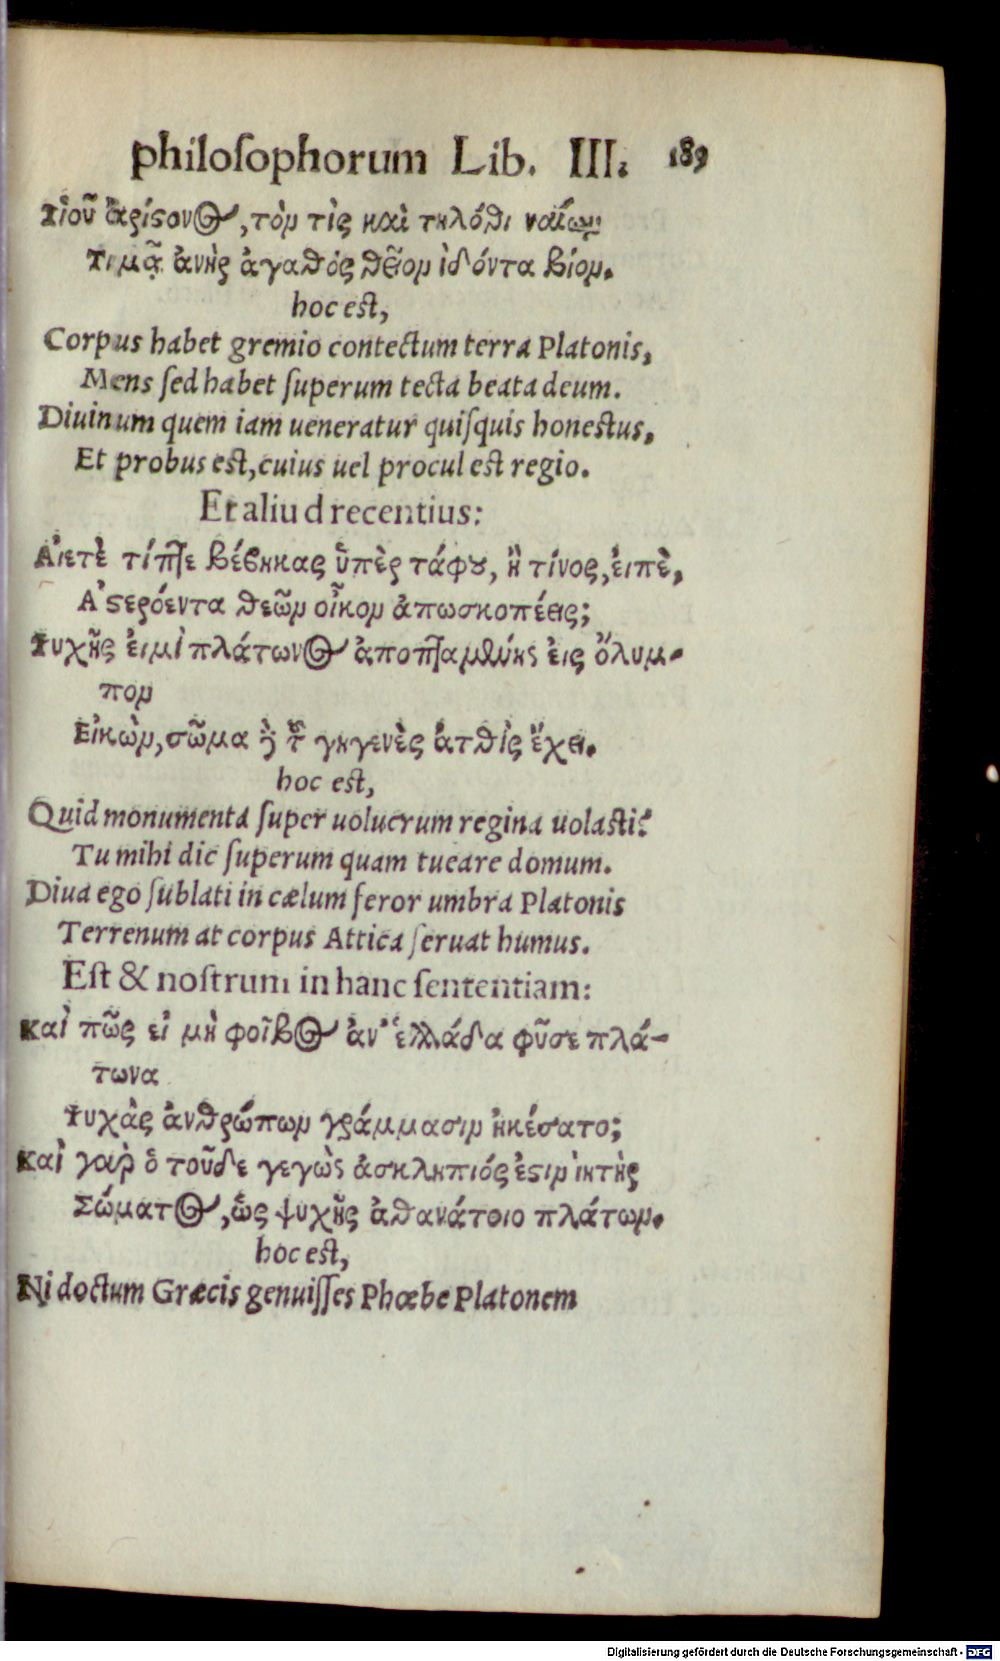 philosophorum Lib. III. 189
Υἱοῦ ἀρίστονος, τὸν τὶς καὶ τηλόθι ναίων
Τιμᾷ ἀνὴρ ἀγαθὸς θεῖον ἰδόντα βίον.
hoc est,
Corpus habet gremio contectum terra Platonis,
Mens sed habet superum tecta beata deum.
Diuinum quem iam ueneratur quisquis honestus,
Et probus est, cuius uel procul est regio.
Et aliud recentius:
Αἰετὲ τίπτε βέβηκας ὑπὲρ τάφου, ἢ τίνος, εἰπὲ,
Ἀστερόεντα θεῶν οἶκον ἀποσκοπέεις;
Ψυχῆς εἰμὶ πλάτωνος ἀποπταμένης εἰς ὄλυμ-
πον
Εἰκὼν, σῶμα δὲ γηγενὲς ἀτθὶς ἔχει.
hoc est,
Quid monumenta super uolucrum regina uolasti?
Tu mihi dic superum quam tueare domum.
Diua ego sublati in cælum feror umbra Platonis
Terrenum at corpus Attica seruat humus.
Est & nostrum in hanc sententiam:
Καὶ πῶς εἰ μὴ φοῖβος ἀν' ἑλλάδα φῦσε πλά-
τωνα
Ψυχὰς ἀνθρώπων γράμμασιν ἠκέσατο;
Καὶ γαρ ὁ τοῦδε γεγὼς ἀσκληπιός ἐστιν ἰητὴρ
Σώματος, ὡς ψυχῆς ἀθανάτοιο πλάτων.
hoc est,
Ni doctum Græcis genuisses Phœbe Platonem
Digitalisierung gefördert durch die Deutsche Forschungsgemeinschaft - DFG